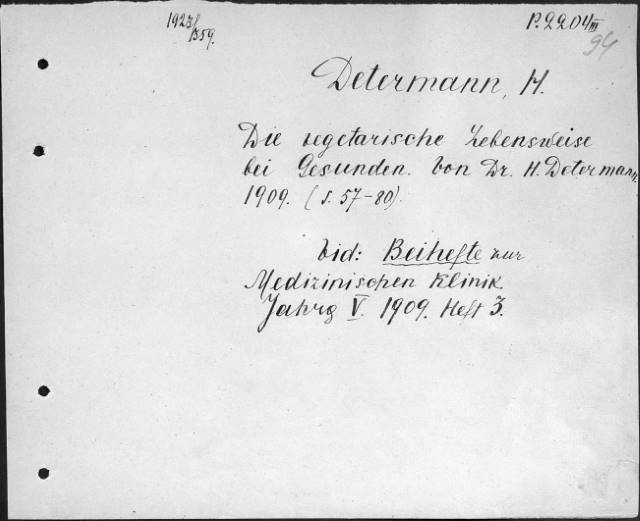 1923/1359.
P. 2204 III
94
Determann, H.
Die vegetarische Lebensweise
bei Gesunden. Von Dr. H. Determann.
1909. (S. 57-80).
Vid: Beihefte zur
Medizinischen Klinik.
Jahrg V. 1909. Heft 3.